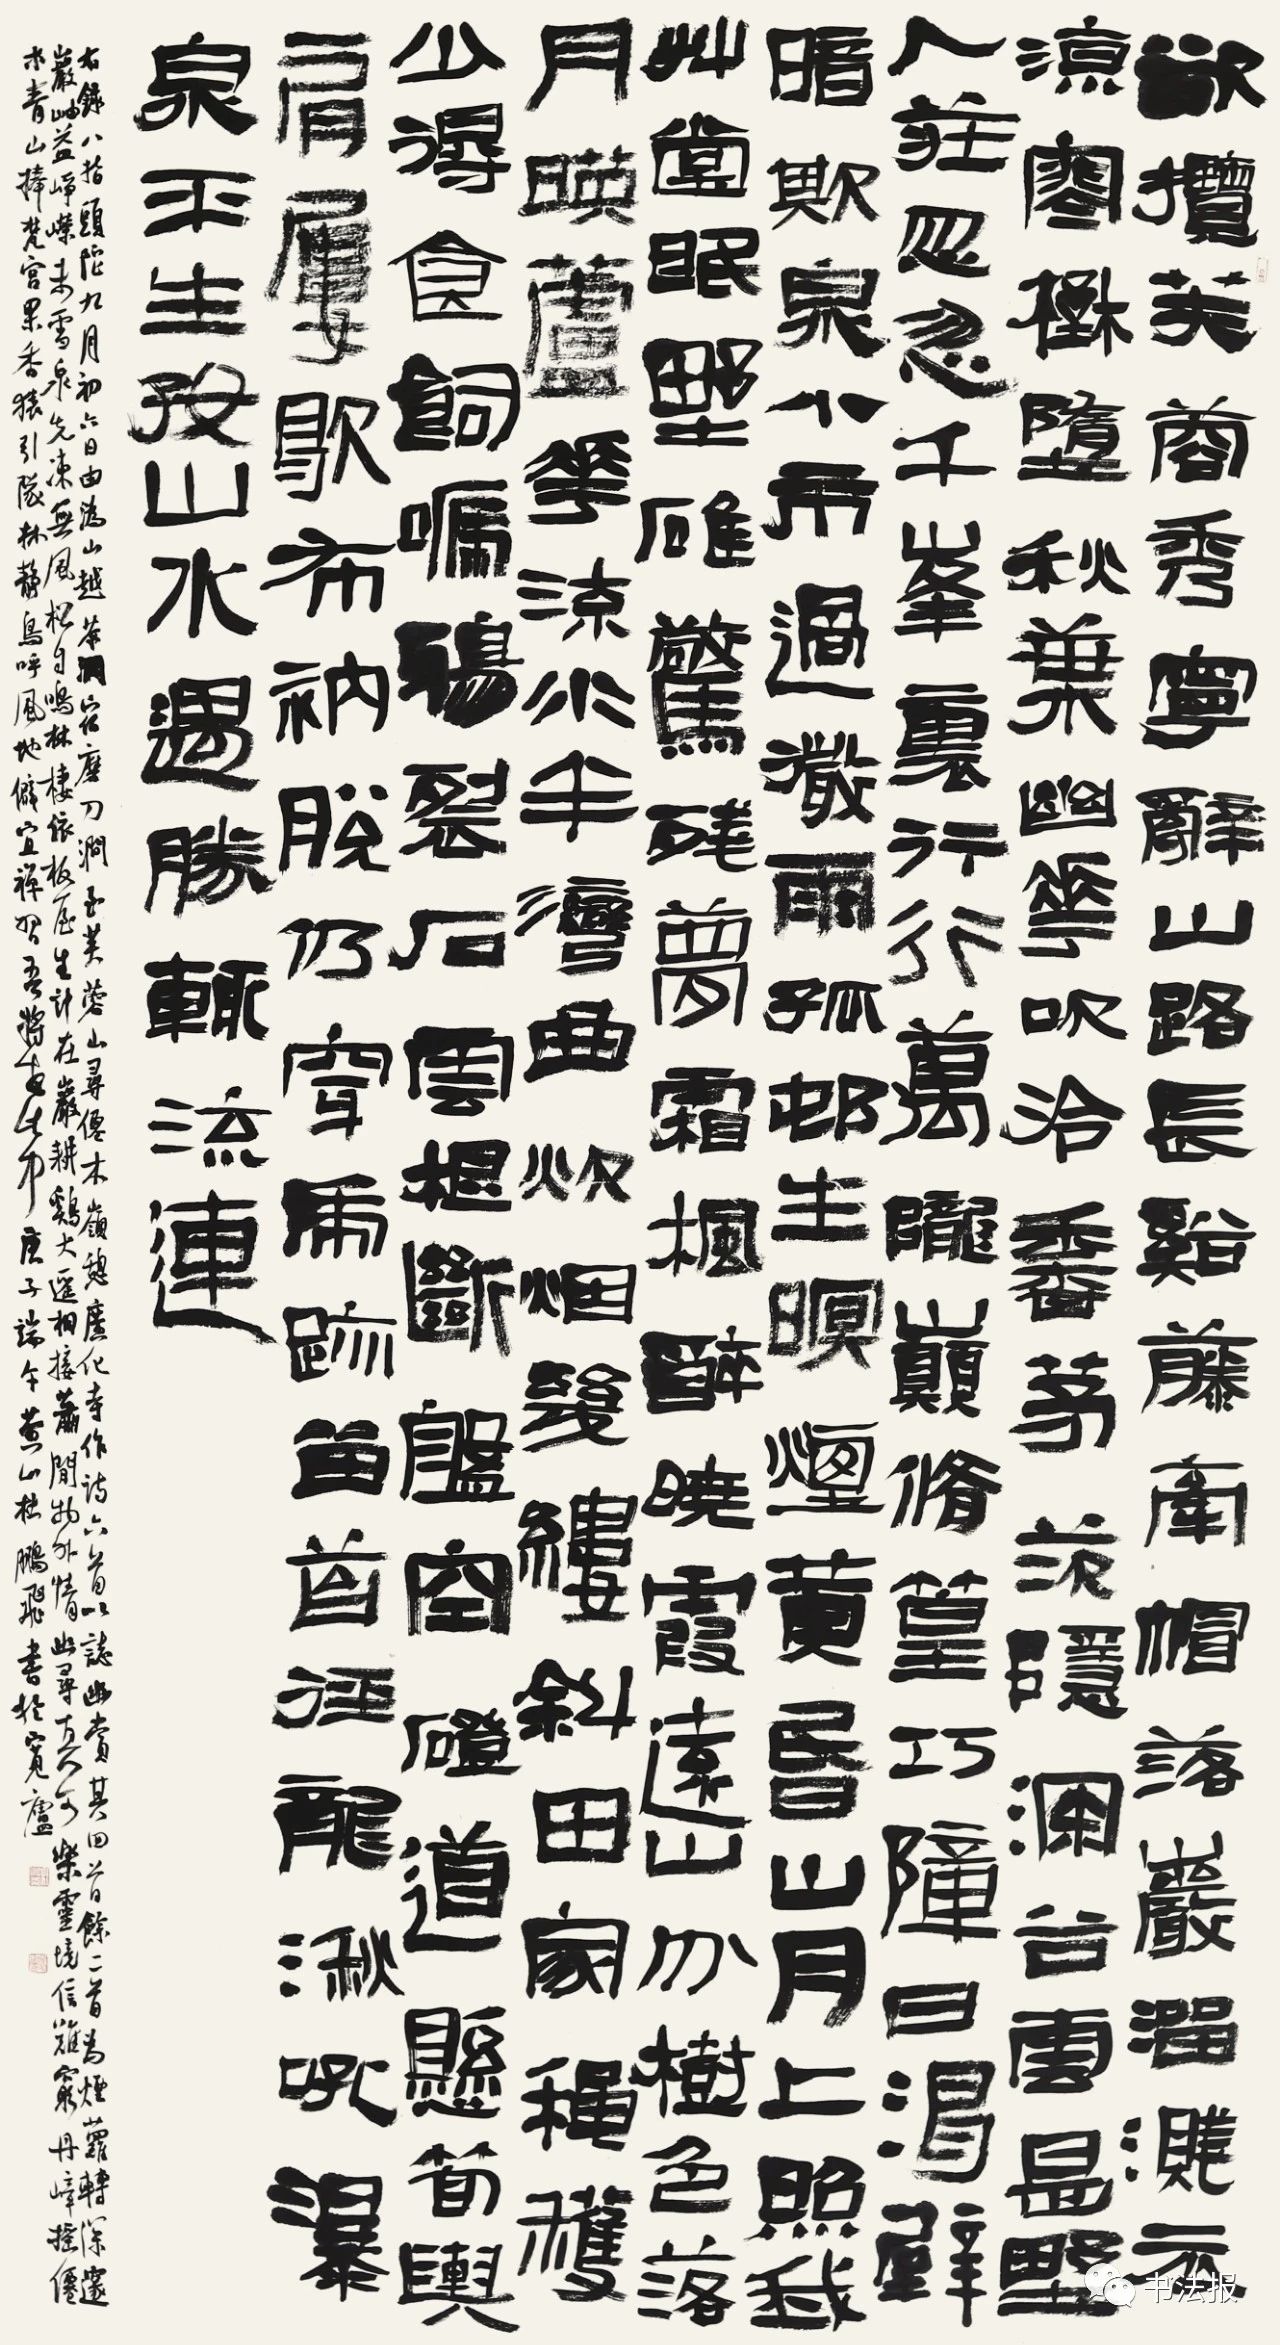 欲攬芙蓉秀寧辭山路長谿藤牽帽落巖溜濺衣
涼密樹墮秋葉幽華吹冷香茅茨隱澗谷雲昷野
人莊忽忽千峯裏行行萬隴巔脩篁巧障日渴壁
暗欺泉小雨過微雨孤邨生暝煙黄昏山月上照我
艸堂眠野碓驚殘夢霜楓醉曉霞遠山分樹色落
月暎蘆華流水半灣曲炊烟幾縷斜田家穜穫
少得食飼嘱鴉裂石雲根斷盤空磴道懸筍輿
肩屢歇布衲脱仍穿虎跡苗首徑龍湫吼瀑
泉平生孜山水遇勝輒流連
右錄八指頭陀九月初六日由溈山越茶洞宿磨刀澗至芙蓉山尋僊木嶺憩廣化寺作詩六首以誌幽賞其四首餘二首為煙蘿轉深邃
巖岫益崢嶸未雪泉先凍無風松自鳴林棲依板屋生計在巖耕鷄犬遥相接蕭閒物外情幽尋真可樂靈境信難窮丹嶂搖僊
木青山捧梵宮果香猿引隊林靜鳥呼風地僻宜禪習吾將老此中庚子端午黄山杜鵬飛書於寬廬
书法报